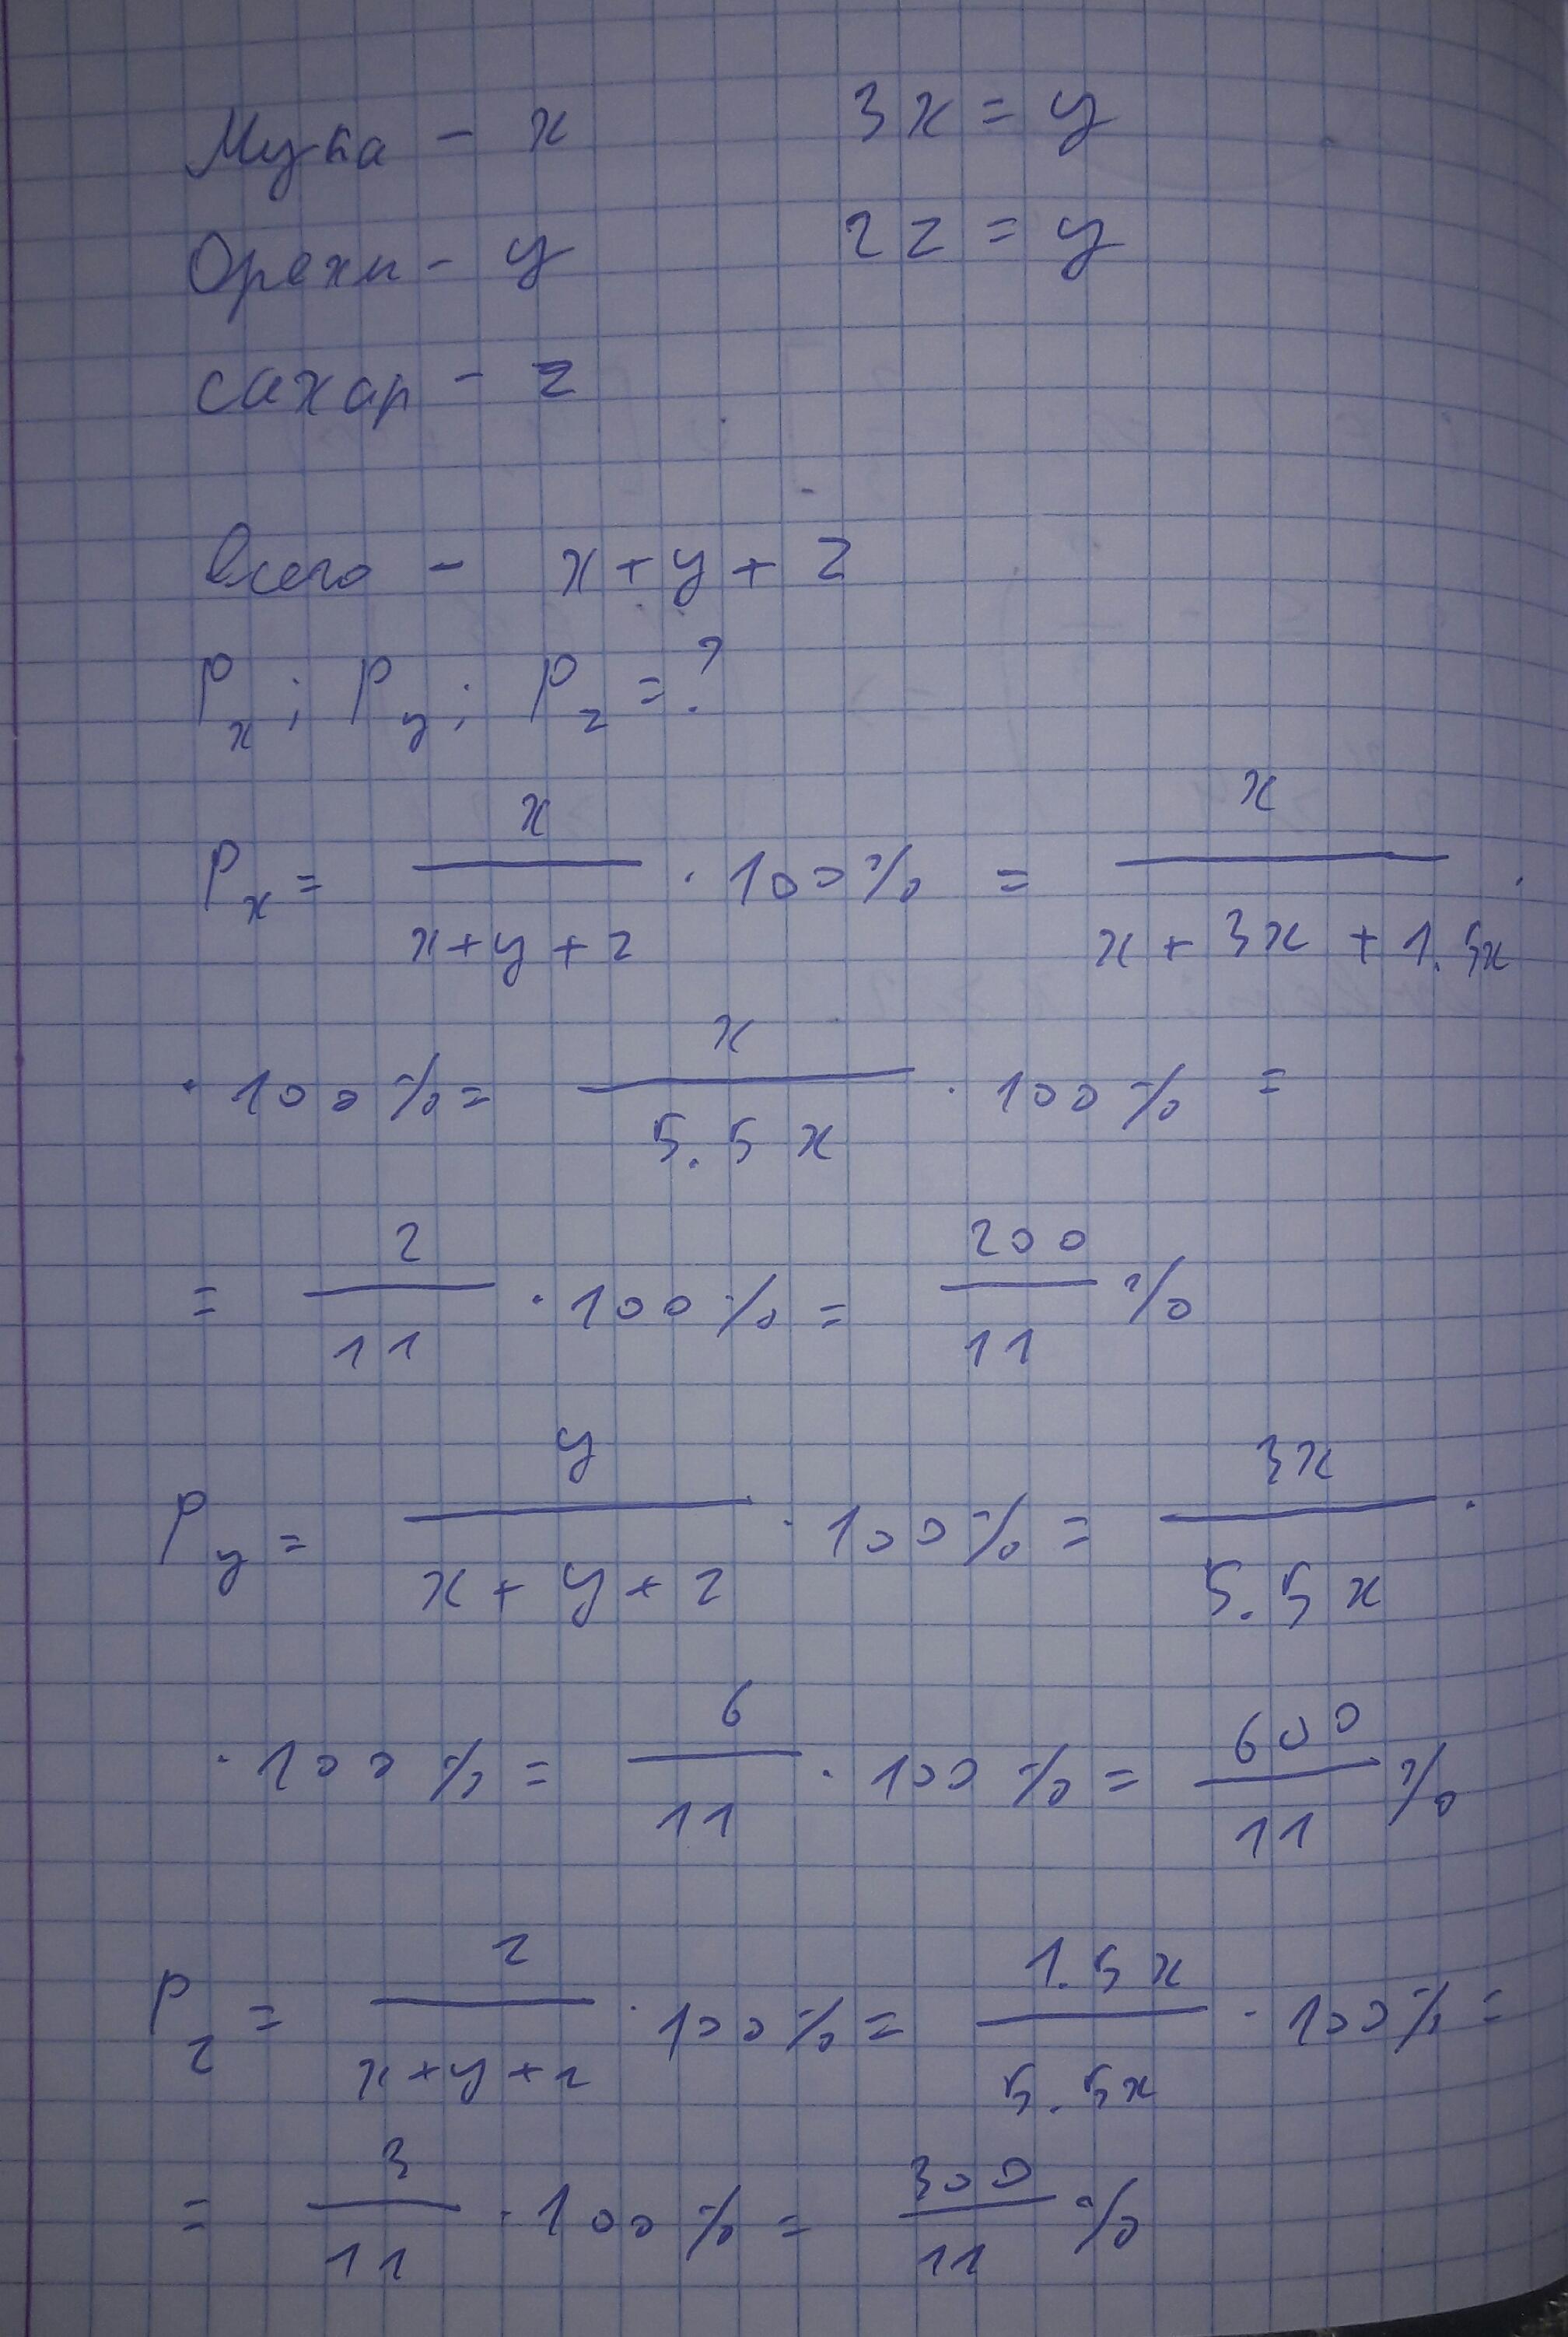 Мука - x 3x = y
Орехи - y 2z = y
сахар - z
всего - x + y + z
Px ; Py ; Pz = ?
Px = x / (x + y + z) · 100% = x / (x + 3x + 1.5x) ·
· 100% = x / 5.5x · 100% =
= 2/11 · 100% = 200/11 %
Py = y / (x + y + z) · 100% = 3x / 5.5x ·
· 100% = 6/11 · 100% = 600/11 %
Pz = z / (x + y + z) · 100% = 1.5x / 5.5x · 100% =
= 3/11 · 100% = 300/11 %